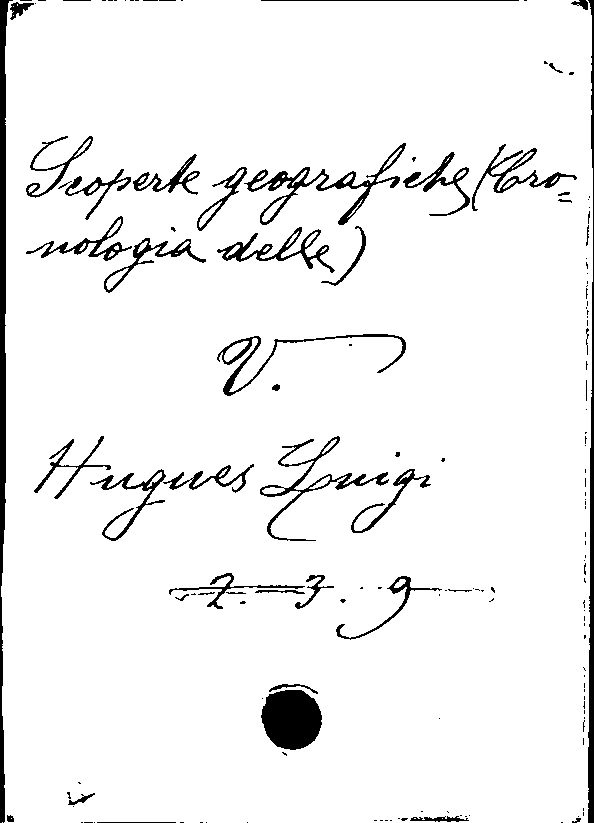 Scoperte geografiche (Cro=
nologia delle)
V.
Hugues Luigi
2. 3. 9